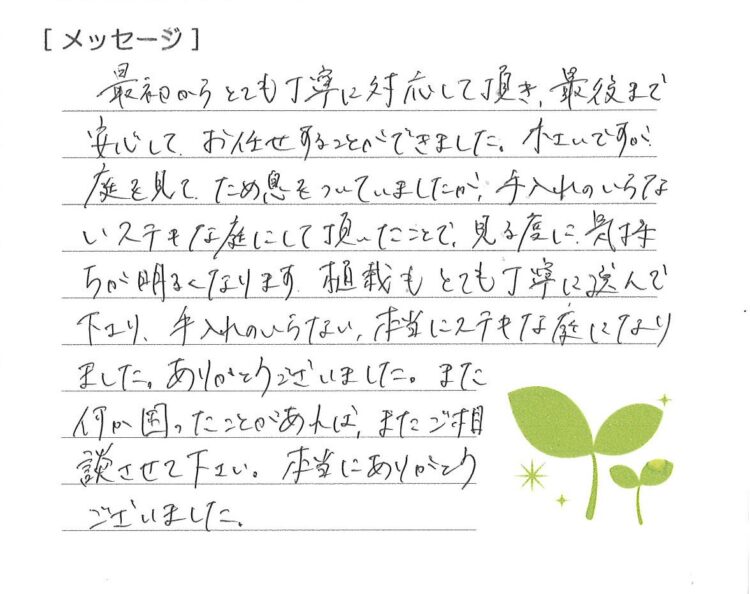 [ メッセージ ]
最初からとても丁寧に対応して頂き、最後まで
安心して、お任せすることができました。
庭を見て、ため息をついていましたが、手入れのいらな
いステキな庭にして頂いたことで、見る度に、気持
ちが明るくなります。植栽もとても丁寧に選んで
下さり、手入れのいらない、本当にステキな庭になり
ました。ありがとうございました。また
何か困ったことがあれば、またご相
談させて下さい。本当にありがとう
ございました。